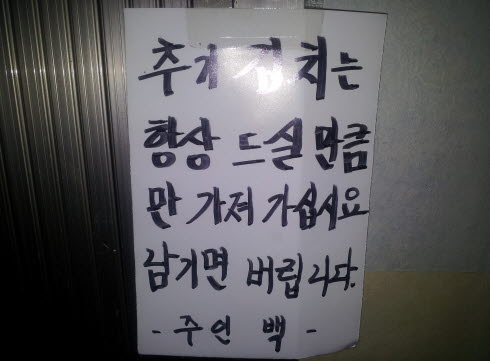 추가 김치는
항상 드실 만큼
만 가져 가십시요
남기면 버립니다.
- 주인 백 -